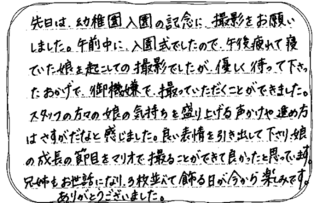 先日は、幼稚園入園の記念に、撮影をお願い
しました。午前中に、入園式でしたので、午後疲れて寝
ていた娘を起こしての撮影でしたが、優しく待って下さっ
たおかげで、御機嫌で、撮っていただくことができました。
スタッフの方々の娘の気持ちを盛り上げる声かけや進め方
はさすがだなと感じました。良い表情を引き出して下さり、娘
の成長の節目をマリオで撮ることができて良かったと思っています。
兄姉もお世話になり、3枚並べて飾る日が今から楽しみです。
ありがとうございました。